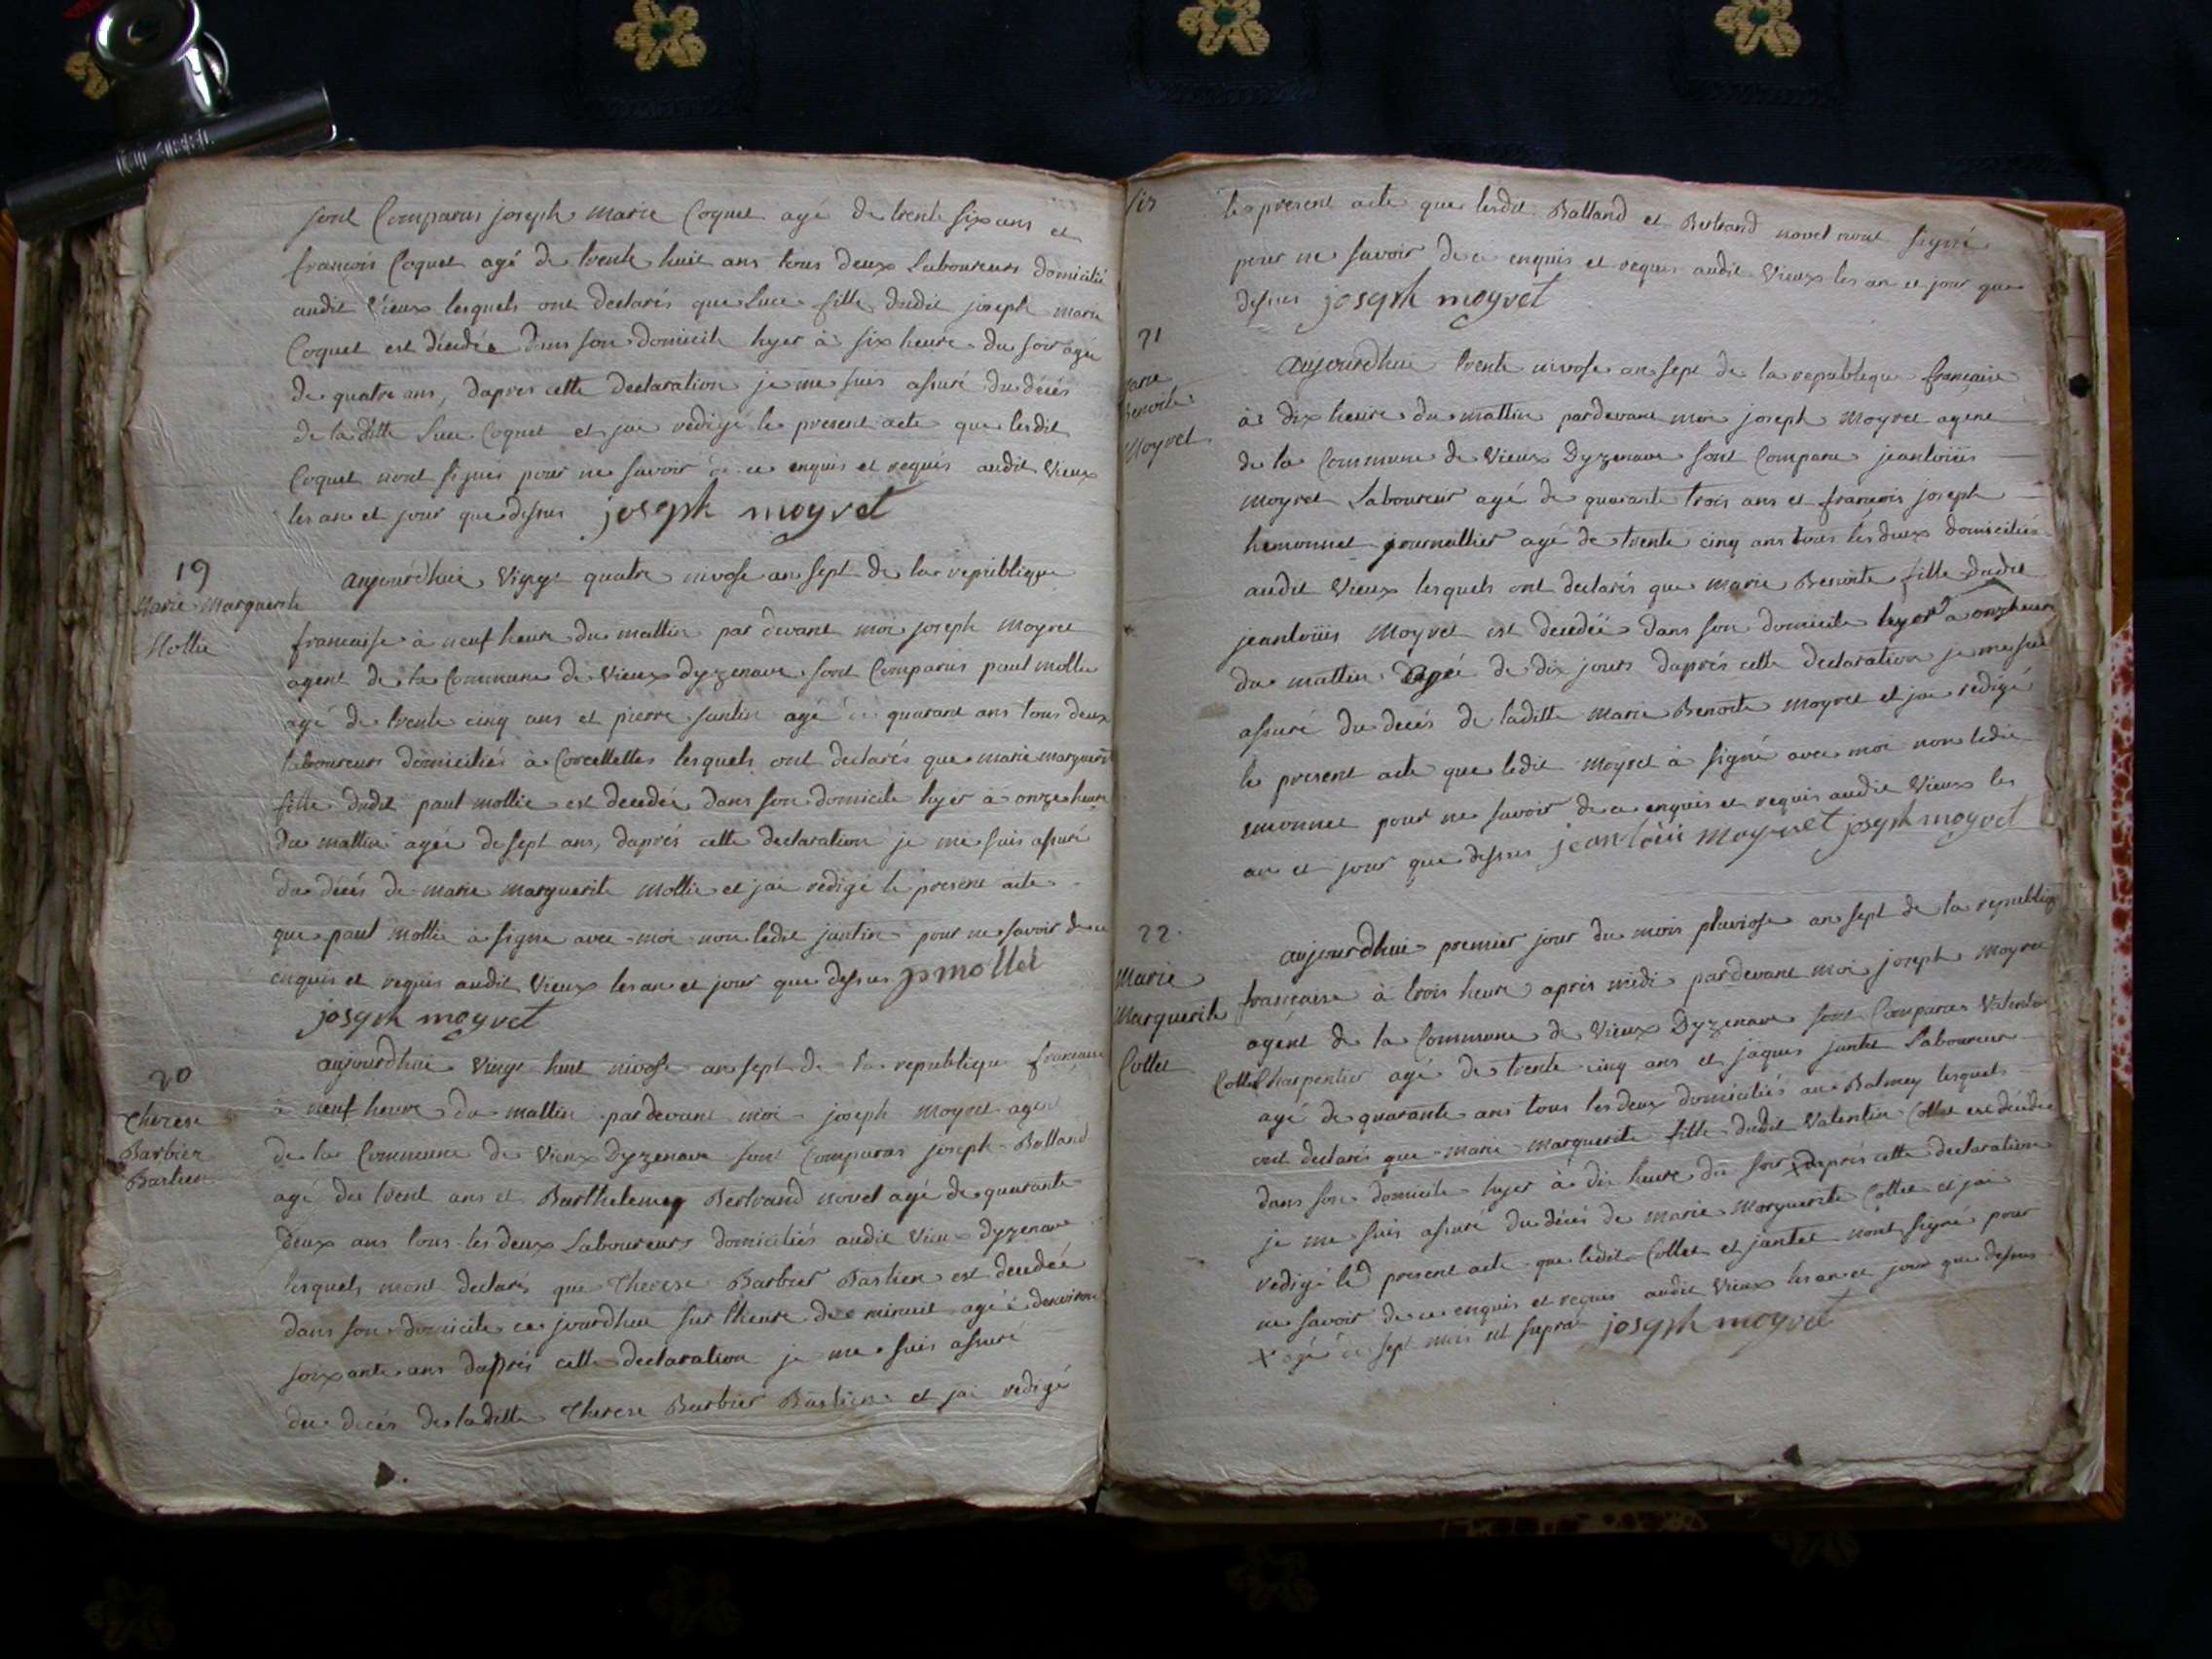 sont Comparus joseph marie Coquet agé de trente six ans et
francois Coquet agé de trente huit ans tous deux Laboureurs domicilié
audit Vieux lesquels ont declarés que Luce fille dudit joseph marie
Coquet est décédée dans son domicile hyer à six heure du soir agée
de quatre ans, dapres cette declaration je me suis assuré du décés
de la ditte Luce Coquet et jai redigé le present acte que lesdit
Coquet nont signés pour ne savoir de ce enquis et requis audit Vieux
les an et jour que dessus joseph moyret
19
Marie Marguerite
Mollie
aujourdhui Vingt quatre nivose an sept de la republique
francaise à neuf heure du mattin par devant moi joseph moyret
agent de la Commune de Vieux dyzenave sont Comparus paul mollie
agé de trente cinq ans et pierre juntin agé de quarant ans tous deux
laboureurs domiciliés à Corcellettes lesquels ont declarés que marie marguerit
fille dudit paul mollie est decedée dans son domicile hyer à onze heure
du mattin agée de sept ans, daprés cette declaration je me suis assuré
du décés de marie marguerite mollie et jai redigé le present acte
que paul mollie à signe avec moi non ledit juntin pour ne savoir de ce
enquis et requis audit Vieux les an et jour que dessus p mollet
joseph moyret
20
Therese
Barbier
Bastien
aujourdhui Vingt huit nivose an sept de la republique francaise
à neuf heure du mattin pardevant moi joseph moyret agent
de la Commune de Vieux Dyzenave sont Comparus joseph Balland
agé de trent ans et Barthelemy Bertrand novel agé de quarante
deux ans tous les deux Laboureurs domiciliés audit Vieux dyzenave
lesquels mont declarés que Therese Barbier Bastien est decedeé
dans son domicile ce jourdhui sur lheure de minuit agéé denviron
soixante ans daprés cette declaration je me suis assuré
du decés de laditte Therese Barbier Bastien et jai redigé
le present acte que lesdit Balland et Bertrand novel nont signé
pour ne savoir de ce enquis et requis audit Vieux les an et jour que
dessus joseph moyret
21
marie
Benoite
Moyret
aujourdhui trente nivose an sept de la republique française
à dix heure du mattin pardevant moi joseph moyret agent
de la Commune de Vieux Dyzenave sont Comparu jeanloüis
moyret Laboureur agé de quarante trois ans et francois joseph
hemonnet journallier agé de trente cinq ans tous les deux domiciliés
audit Vieux lesquels ont declarés que marie Benoite fille dudit
jeanloüis Moyret est decedéé dans son domicile hyer à onzheure
du mattin agéé de dix jours daprés cette declaration je me suis
assuré du decés de laditte marie Benoite moyret et jai redigé
le present acte que ledit moyret à signé avec moi non ledit
emonnet pour ne savoir de ce enquis et requis audit Vieux les
an et jour que dessus jean loüis moyret joseph moyret
22
Marie
Marguerite
Collet
aujourdhui premier jour du mois pluviose an sept de la republiq
française à trois heure après midi pardevant moi joseph moyret
agent de la Commune de Vieux Dyzenave sont Comparus Valentin
Collet Charpentier agé de trente cinq ans et jaques juntet Laboureur
agé de quarante ans tous les deux domiciliés au Balmey lesquels
ont declarés que marie marguerite fille dudit Valentin Collet est décédée
dans son domicile hyer à dix heure du soir x daprés cette declaration
je me suis assuré du décés de marie Marguerite Collet et jai
redigé led present acte que ledit Collet et jantet nont signé pour
ne savoir de ce enquis et requis audit Vieux les an et jour que dessus
x agé de sept mois ut supra joseph moyret